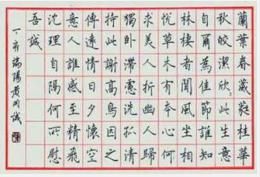 蘭葉春葳蕤桂華
秋皎潔欣欣此生意
自爾為佳節誰知
林棲者聞風坐相
悅草木有本心何
求美人折幽人歸
獨臥滯慮洗孤清
持此謝高鳥因之
傳遠情日夕懷空
意人誰感至精飛
沈理自隔何所慰
吾誠
端陽